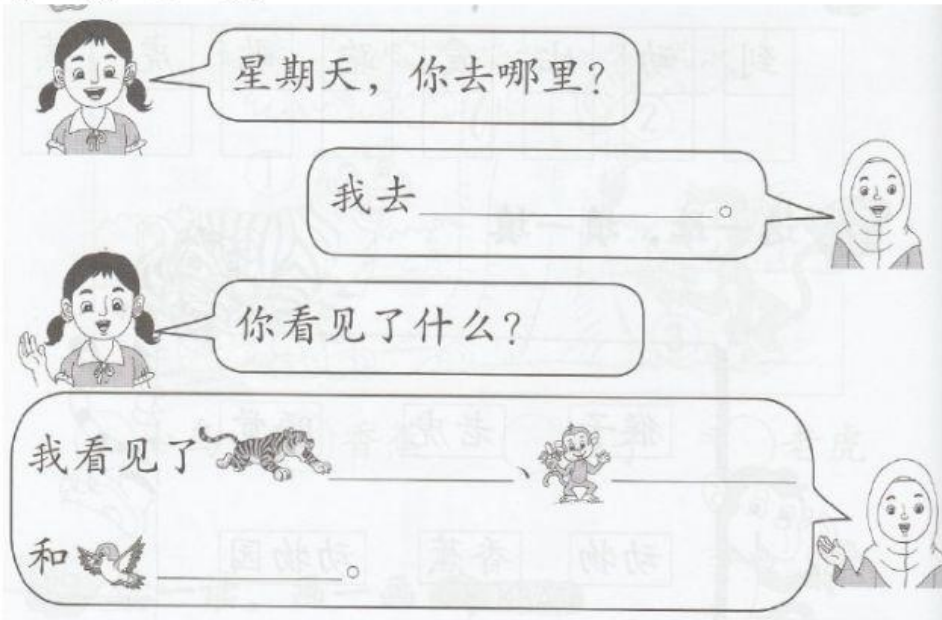 星期天，你去哪里？
我去____________。
你看见了什么？
我看见了________、________
和________。